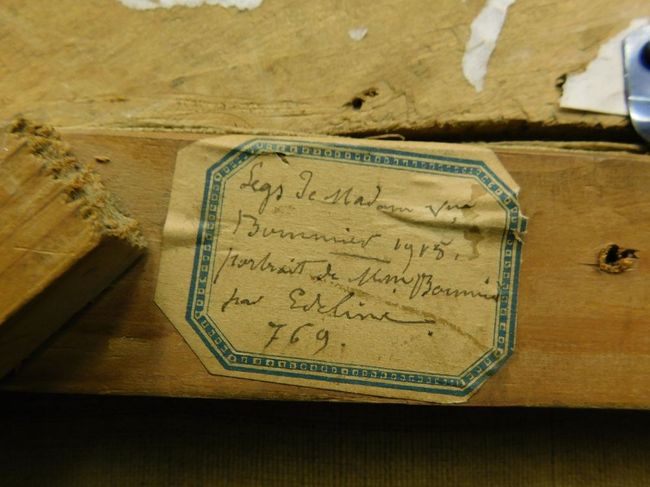 Legs de Madame Vve
Bommier 1915.
portrait de Mme Bommier
par Edeline.
769.